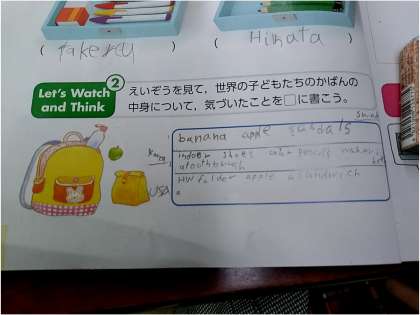 ( takeru ) ( Himata )
Let's Watch and Think 2
えいぞうを見て，世界の子どもたちのかばんの
中身について，気づいたことを□に書こう。
banana apple sandals
indoor shoes color pencils
a toothbrush
USA
HW folder apple a sandwich
a